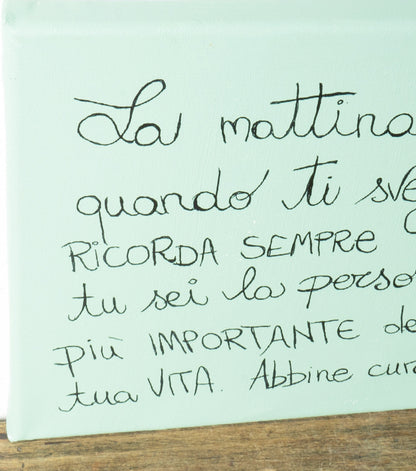 La mattina
quando ti sve
RiCORDA SEMPRE
tu sei la perso
più IMPORTANTE de
tua VITA. Abbine cura